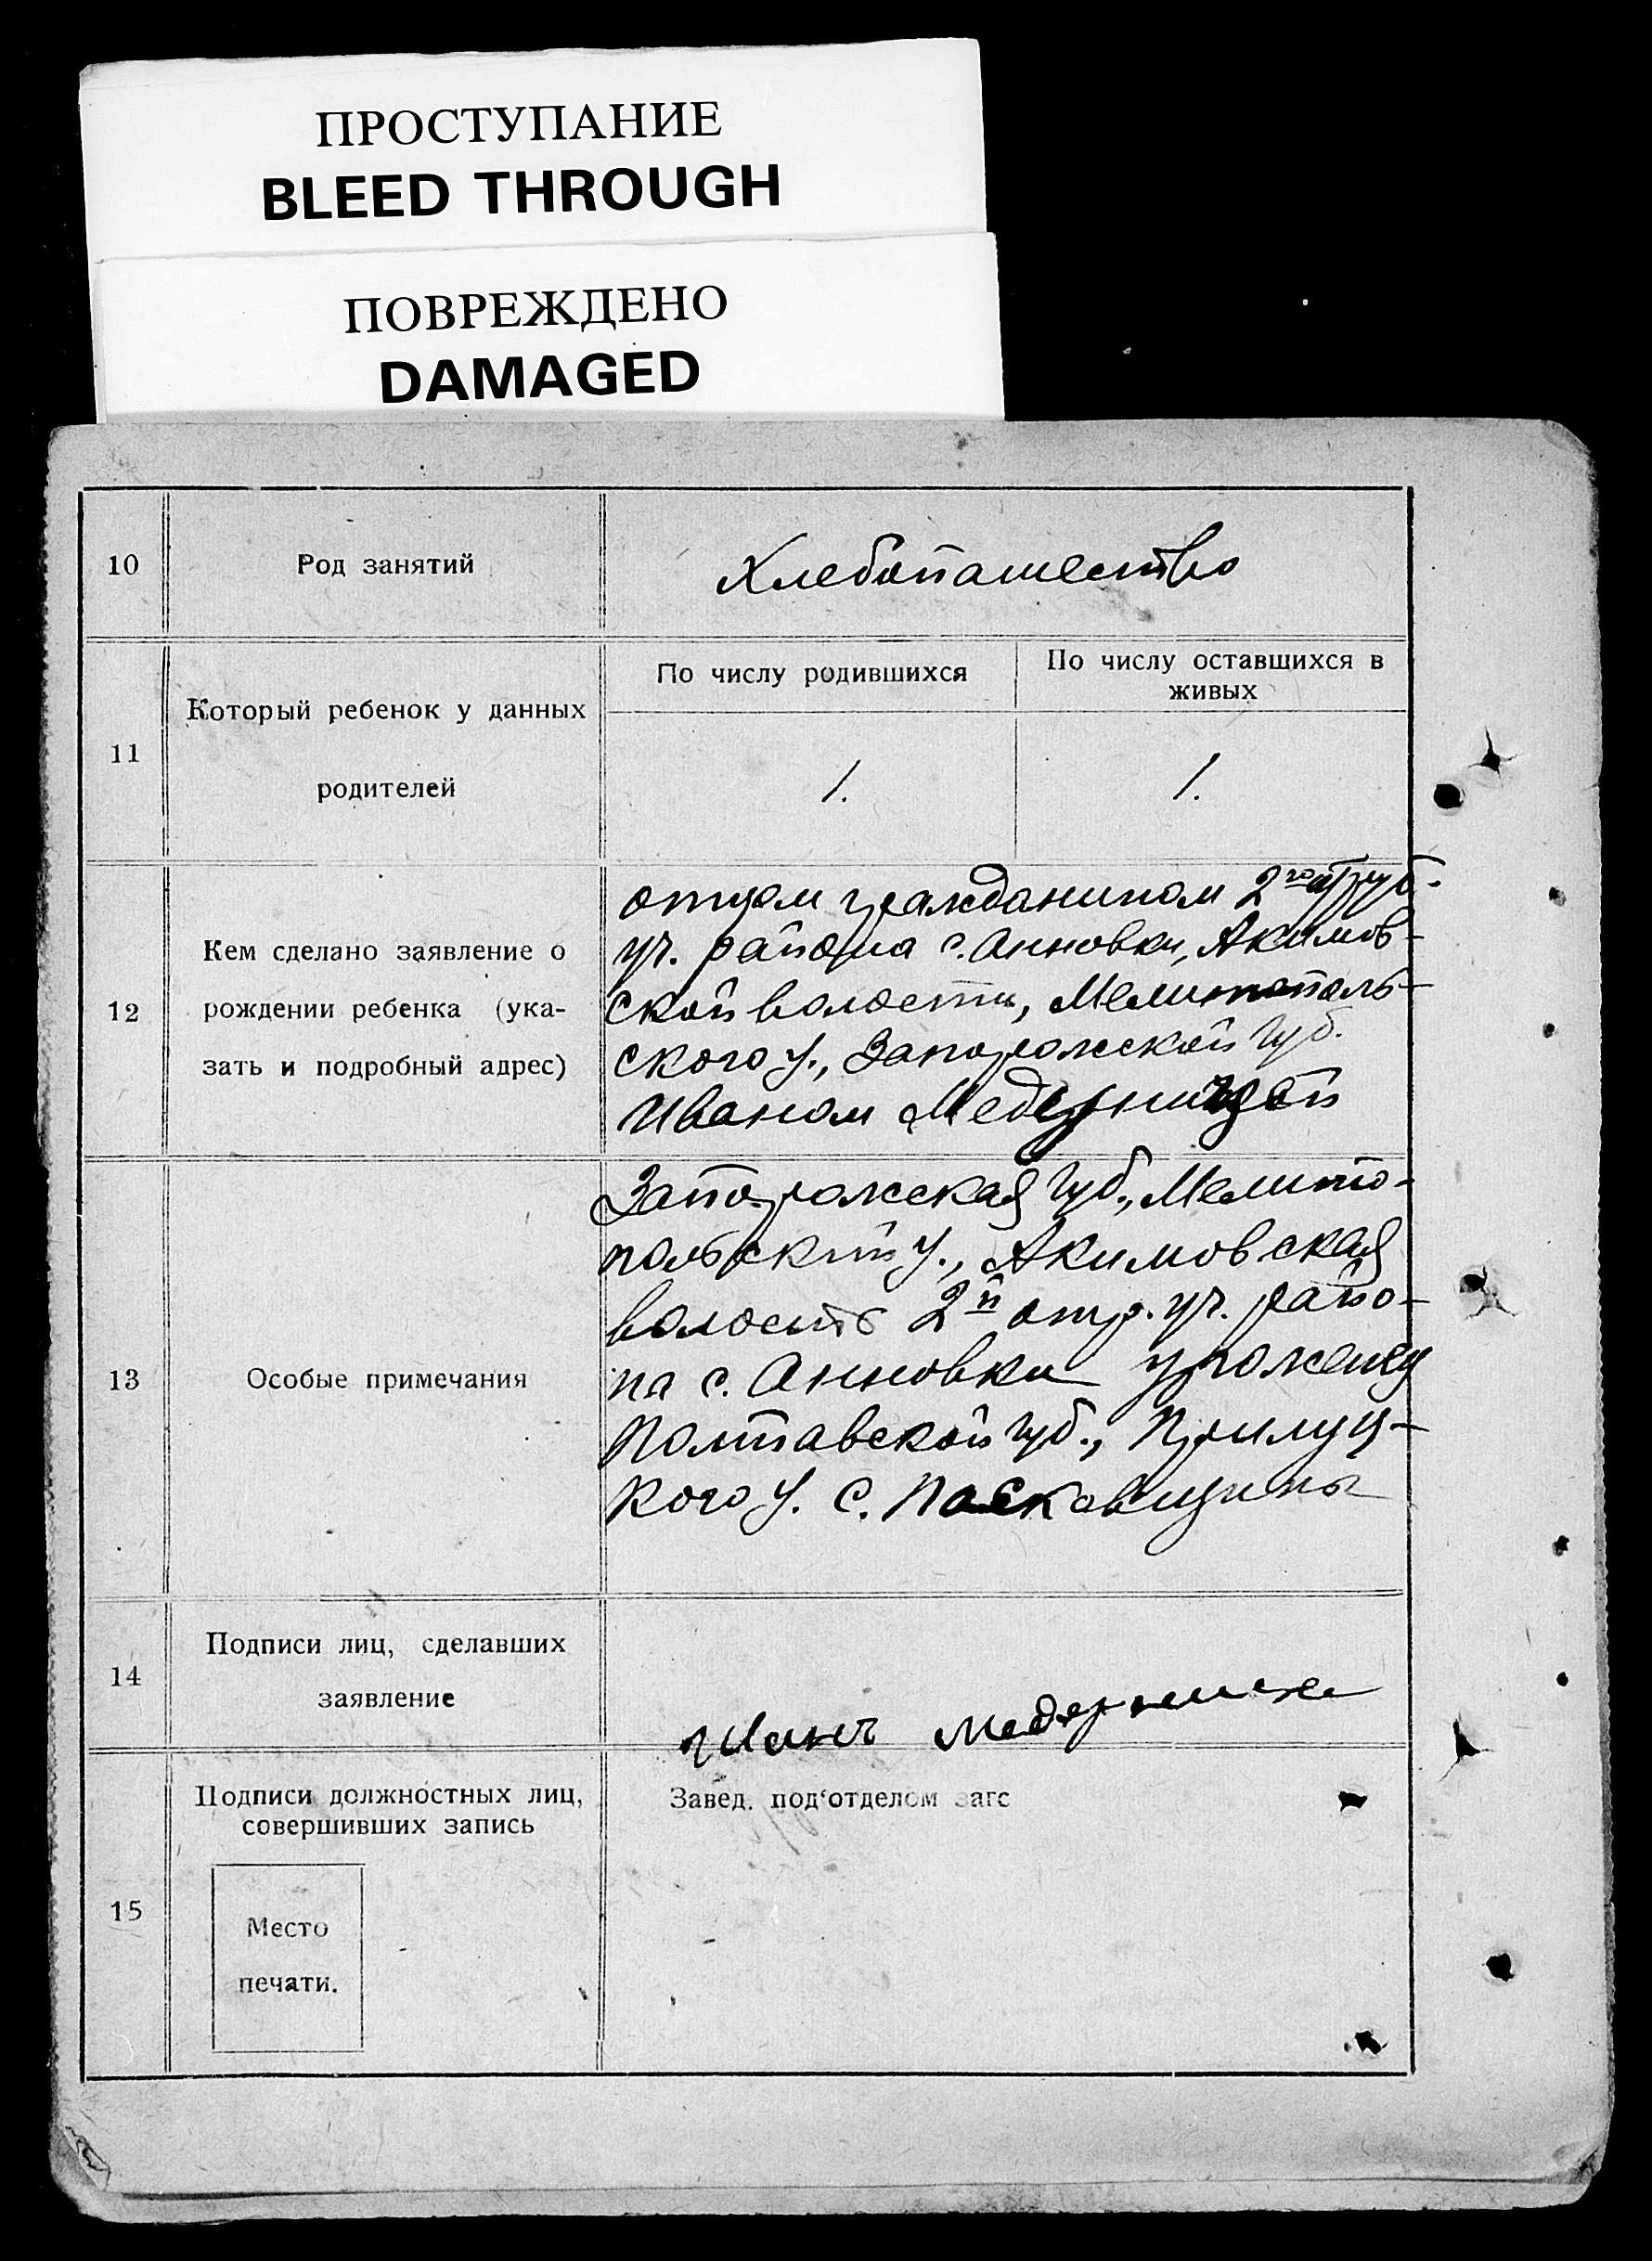 ПРОСТУПАНИЕ
BLEED THROUGH
ПОВРЕЖДЕНО
DAMAGED
10
Род занятий
Хлебопашество
11
Который ребенок у данных
родителей
По числу родившихся
По числу оставшихся в
живых
1.
1.
12
Кем сделано заявление о
рождении ребенка (ука-
зать и подробный адрес)
отцом гражданином 2го
уч. района с. Анновки, Акимов-
ской волости, Мелитополь-
ского у., Запорожской губ.
Иваном
13
Особые примечания
Запорожская губ., Мелито-
польский у., Акимовская
волость 2й отр. уч. райо-
на с. Анновки урожен
Полтавской губ., Прилуц-
кого у. с. Пасковщины
14
Подписи лиц, сделавших
заявление
15
Подписи должностных лиц,
совершивших запись
Место
печати.
Завед. под'отделом загс